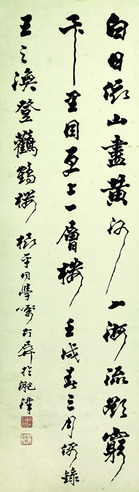 白日依山盡黃河入海流欲窮
千里目更上一層樓 春三月錄
王之渙登鸛鵲樓 平同學囑於